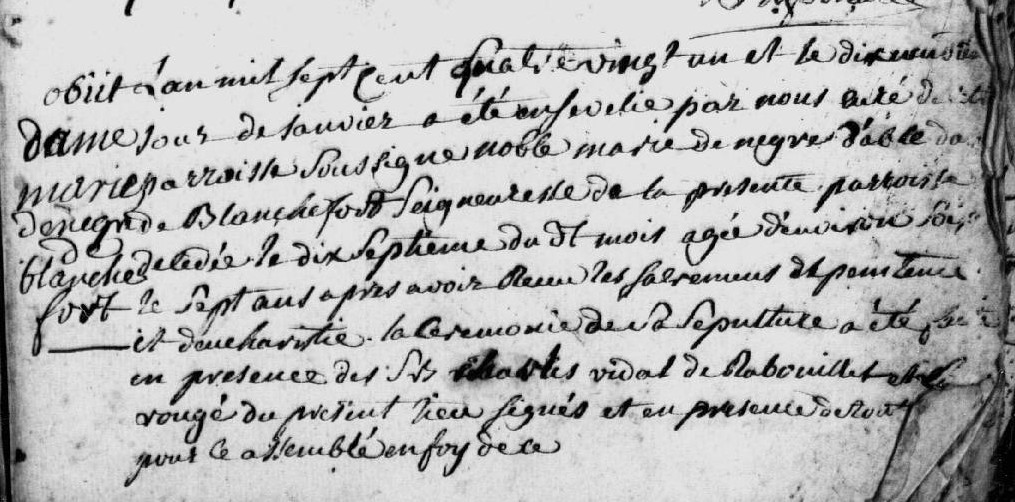 obiit
dame
marie
de negri
de
blanche
fort
L'an mil sept cent quatrevingt un et le dixneuvie
jour de janvier a été ensevelie par nous curé de
parroisse soussigné noble marie de negre d'able da
de Blanchefort seigneuresse de la presente parroisse
decedée le dix septieme du dt mois agée d'environ soi
te sept ans apres avoir Receu les sacremens de penitence
et d'eucharistie. la Ceremonie de sa sepulture a été faite
en presence des srs charles vidal de Rabouillet et
rougé du present lieu signés et en presence de tout
pour ce assemblé en foy de ce